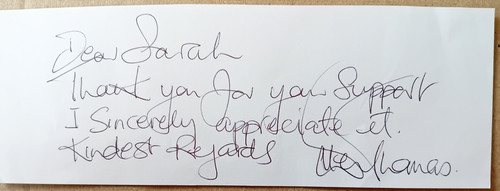 Dear Sarah
Thank you for your Support
I Sincerely appreciate it.
Kindest Regards